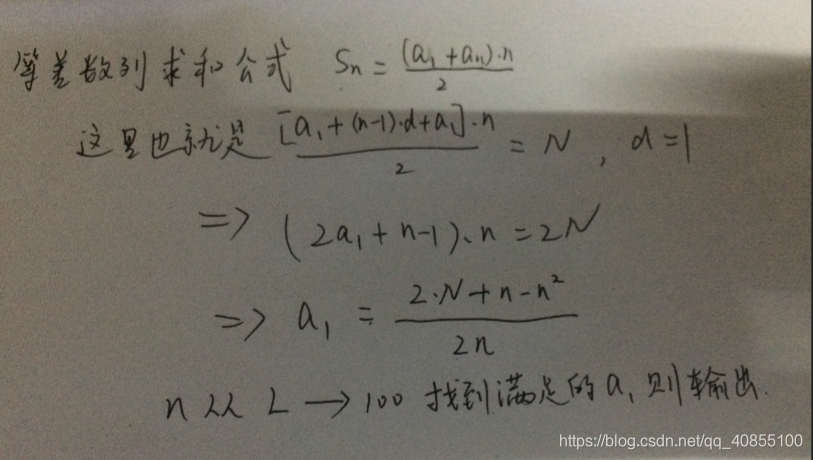 等差数列求和公式 Sn = (a₁+aₙ)·n / 2
这里也就是 [a₁+(n-1)·d+a₁]·n / 2 = N , d=1
=> (2a₁+n-1)·n=2N
=> a₁ = 2·N+n-n² / 2n
n 从 L → 100 找到满足的a₁则输出.
https://blog.csdn.net/qq_40855100